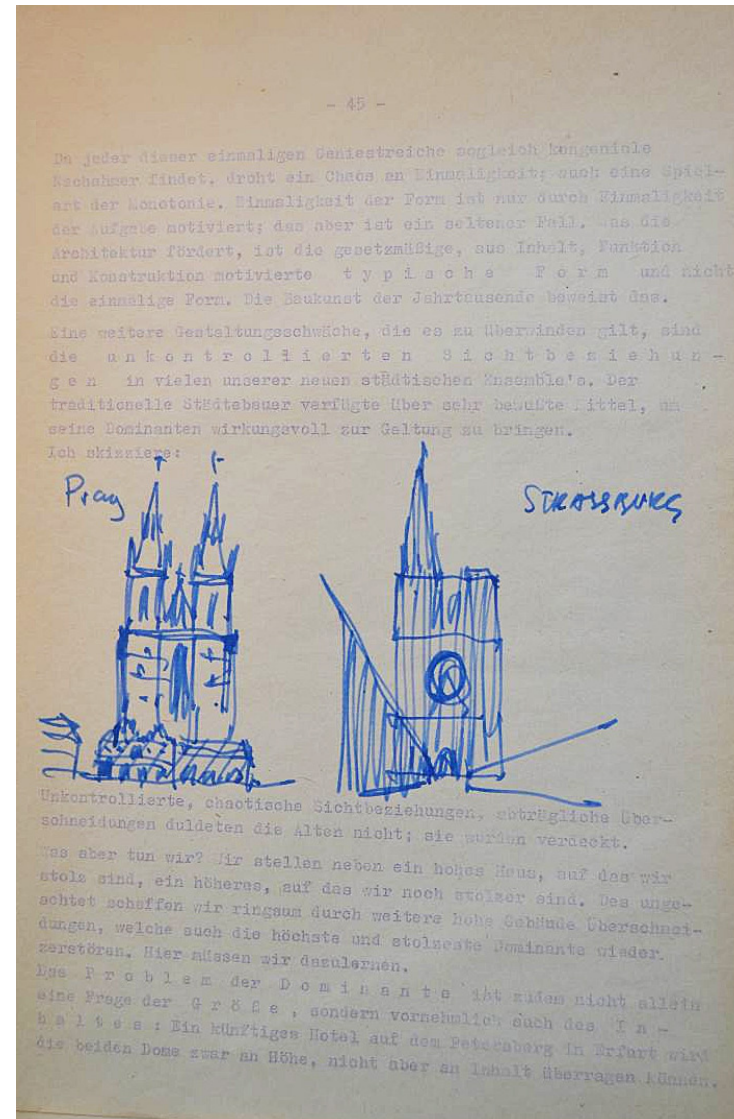 - 45 -
Da jeder dieser einmaligen Geniestreiche sogleich kongeniale
Nachahmer findet, droht ein Chaos an Einmaligkeit; auch eine Spiel-
art der Monotonie. Einmaligkeit der Form ist nur durch Einmaligkeit
der Aufgabe motiviert; das aber ist ein seltener Fall. Was die
Architektur fördert, ist die gesetzmäßige, aus Inhalt, Funktion
und Konstruktion motivierte t y p i s c h e F o r m und nicht
die einmalige Form. Die Baukunst der Jahrtausende beweist das.
Eine weitere Gestaltungsschwäche, die es zu überwinden gilt, sind
die u n k o n t r o l l i e r t e n S i c h t b e z i e h u n -
g e n in vielen unserer neuen städtischen Ensemble's. Der
traditionelle Städtebauer verfügte über sehr bewußte Mittel, um
seine Dominanten wirkungsvoll zur Geltung zu bringen.
Ich skizziere:
Prag
STRASSBURG
Unkontrollierte, chaotische Sichtbeziehungen, abträgliche Über-
schneidungen duldeten die Alten nicht; sie wurden verdeckt.
Was aber tun wir? Wir stellen neben ein hohes Haus, auf das wir
stolz sind, ein höheres, auf das wir noch stolzer sind. Des unge-
achtet schaffen wir ringsum durch weitere hohe Gebäude Überschnei-
dungen, welche auch die höchste und stolzeste Dominante wieder
zerstören. Hier müssen wir dazulernen.
Das P r o b l e m der D o m i n a n t e ist zudem nicht allein
eine Frage der G r ö ß e , sondern vornehmlich auch des I n -
h a l t e s : Ein künftiges Hotel auf dem Petersberg in Erfurt wird
die beiden Dome zwar an Höhe, nicht aber an Inhalt überragen können.